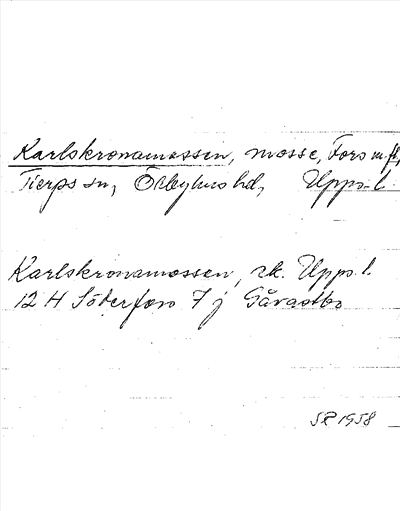 Karlskronamossen, mosse, Fors m.fl.,
Tierps sn, Örbyhus hd, Upps. l.
Karlskronamossen, ek. Upps. l.
12 H Söderfors 7 j Gårastbo
SR 1958